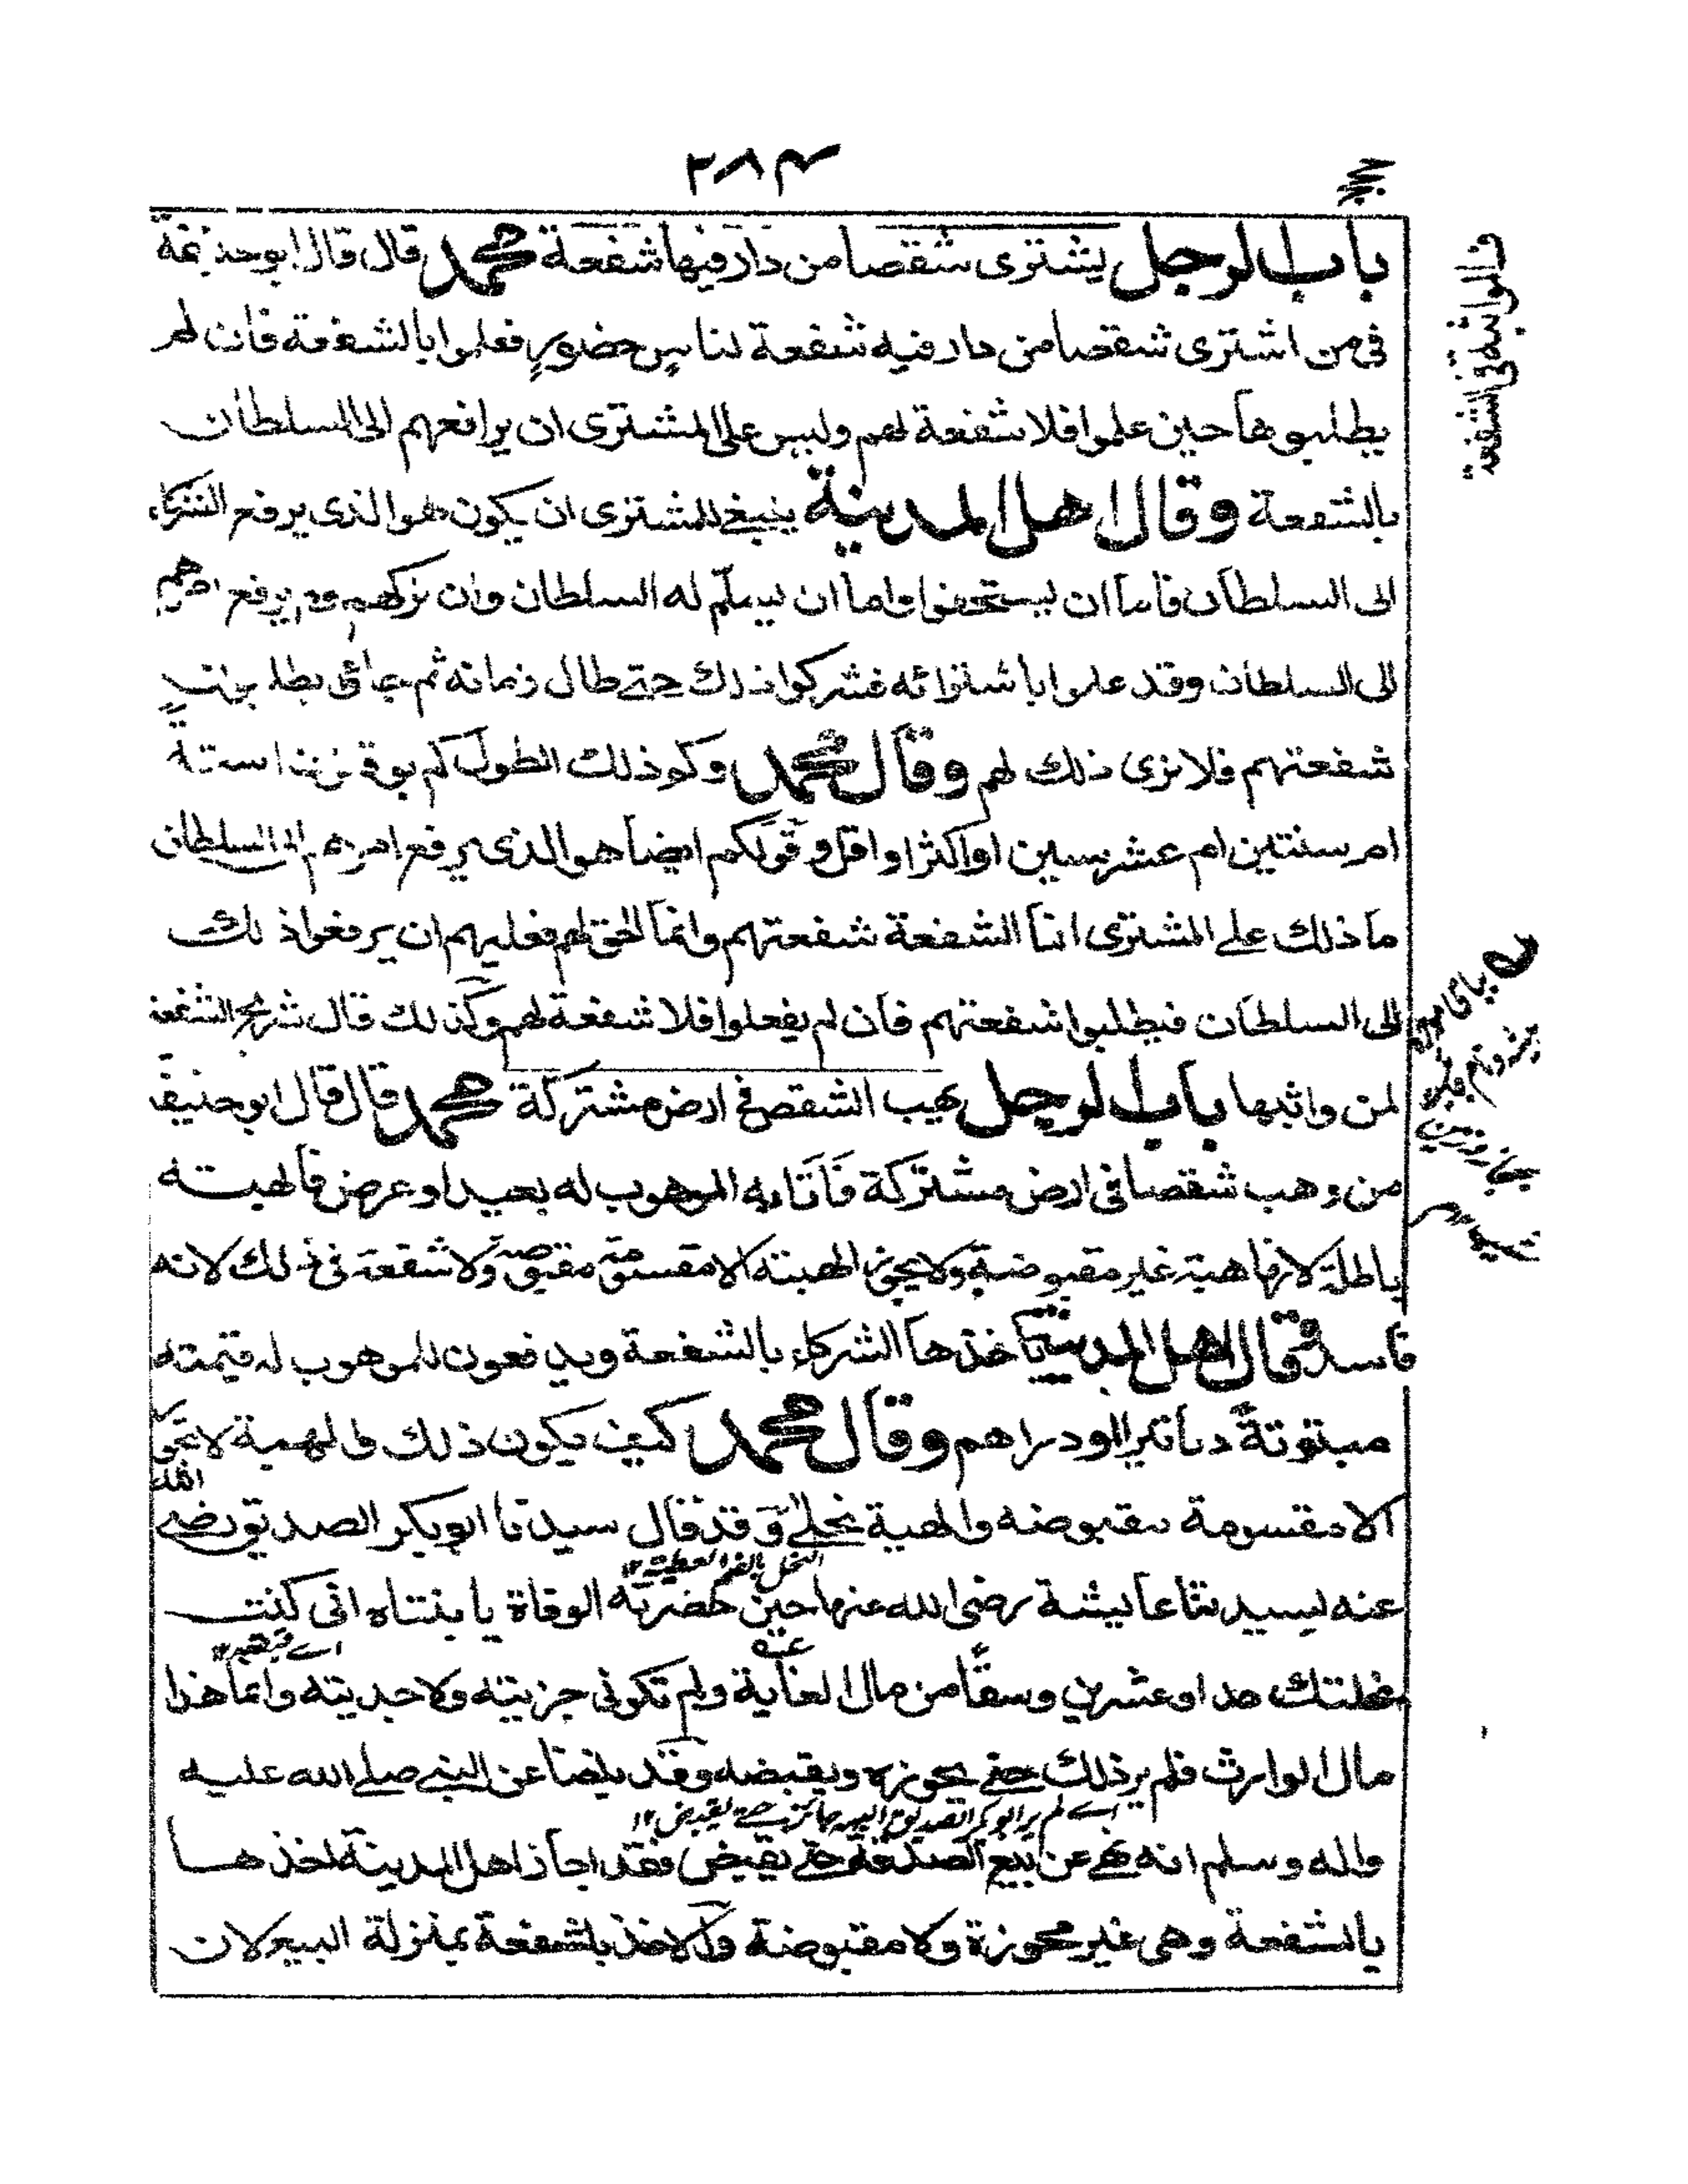 ٢٨٤
باب الرجل يشترى شقصا من دار فيها شفعة محمد قال قال ابو حنيفة
فى من اشترى شقصا من دار فيه شفعة لناس حضور فعلموا بالشفعة فان لم
يطلبوها حين علموا فلا شفعة لهم وليس على المشترى ان يرافعهم الى السلطان
بالشفعة وقال اهل المدينة ينبغى للمشترى ان يكون هو الذى يرفع الشركاء
الى السلطان فاما ان يستحقوا واما ان يسلم له السلطان وان تركهم يرفع امرهم
الى السلطان وقد علموا باشترائه فتركوا ذلك حتى طال زمانه ثم جاؤ يطلبون
شفعتهم فلا نرى ذلك لهم وقال محمد وكم ذلك الطول كم سنة
ام سنتين ام عشر سنين او اكثر او اقل وقولكم ايضا هو الذى يرفع امرهم الى السلطان
ما ذلك على المشترى انما الشفعة شفعتهم وانما الحق لهم فعليهم ان يرفعوا ذلك
الى السلطان فيطلبوا شفعتهم فان لم يفعلوا فلا شفعة لهم وكذلك قال شريح الشفعة
لمن واثبها باب الرجل يهب الشقص فى ارض مشتركة محمد قال قال ابو حنيفة
من وهب شقصا فى ارض مشتركة فاتاه الموهوب له بعبد او عرض فالهبة
باطلة لانها هبة غير مقبوضة ولا يجوز الهبة الا مقسومة مقبوضة ولا شفعة فى ذلك لانه
فاسد وقال اهل المدينة ياخذها الشركاء بالشفعة ويدفعون للموهوب له قيمته
مبتوتة دنانير او دراهم وقال محمد كيف يكون ذلك والهبة لا تجوز
الا مقسومة مقبوضة والهبة نحلى وقد قال سيدنا ابو بكر الصديق رضى الله
النحل بالضم العطية ١٢
عنه لسيدتنا عايشة رضى الله عنها حين حضرته الوفاة يا بنتاه انى كنت
نحلتك جداد عشرين وسقا من مال الغابة ولم تكونى حزيته ولا جديته وانما هذا
مال الوارث فلم ير ذلك حتى يحوزه ويقبضه وقد بلغنا عن النبى صلى الله عليه
اے لم ير ابو بكر الصديق الهبة جائزة حتى يقبض ١٢
واله وسلم انه نهى عن بيع الصدقة حتى تقبض فقد اجاز اهل المدينة اخذها
بالشفعة وهى غير محوزة ولا مقبوضة والاخذ بالشفعة بمنزلة البيع لان